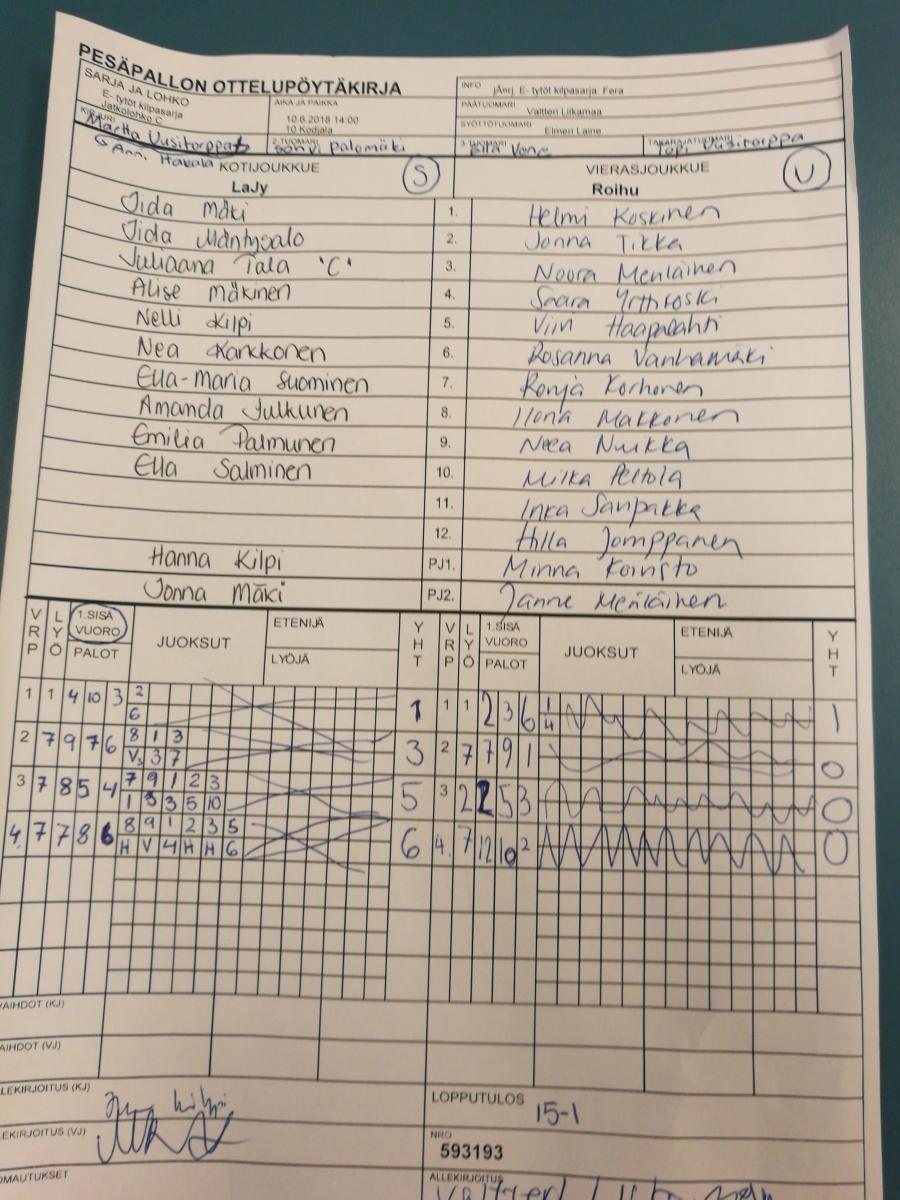 PESÄPALLON OTTELUPÖYTÄKIRJA
SARJA JA LOHKO
E- tytöt kilpasarja
Jatkolohko C
AIKA JA PAIKKA
10.6.2018 14:00
10 Kodjala
INFO
E- tytöt kilpasarja Fera
PÄÄTUOMARI Valtteri Liikamaa
SYÖTTÖTUOMARI Elmeri Laine
KIRJURI Martta Uusitorppa
2-TUOMARI Palomäki
3-TUOMARI
TAKARAJATUOMARI Topi Uusitorppa
KOTIJOUKKUE S
LaJy
VIERASJOUKKUE U
Roihu
Iida Mäki 1. Helmi Koskinen
Iida Mäntysalo 2. Jonna Tikka
Juliaana Tala 'C' 3. Noora Meriläinen
Alise Mäkinen 4. Saara Yrttikoski
Nelli Kilpi 5. Viivi Haapalahti
Nea Karkkonen 6. Rosanna Vanhamäki
Ella-Maria Suominen 7. Ronja Korhonen
Amanda Julkunen 8. Ilona Makkonen
Emilia Palmunen 9. Neea Nuikka
Ella Salminen 10. Milka Peltola
11. Inka Sanpakka
12. Hilla Jomppanen
Hanna Kilpi PJ1. Minna Koivisto
Jonna Mäki PJ2. Janne Meriläinen
VRP LYÖ 1.SISÄ VUORO PALOT JUOKSUT ETENIJÄ LYÖJÄ YHT VRP LYÖ 1.SISÄ VUORO PALOT JUOKSUT ETENIJÄ LYÖJÄ YHT
1 1 4 10 3 2 1 1 1 2 3 6 1 1
6 4
2 7 9 7 6 8 1 3 3 2 7 7 9 1 0
3 7
3 7 8 5 4 7 9 1 2 3 5 3 2 2 5 3 0
1 3 3 5 10
4. 7 7 8 6 8 9 1 2 3 5 6 4. 7 12 10 2 0
H V 4 H H 6
VAIHDOT (KJ)
VAIHDOT (VJ)
ALLEKIRJOITUS (KJ)
LOPPUTULOS 15-1
ALLEKIRJOITUS (VJ)
NRO
593193
HUOMAUTUKSET
ALLEKIRJOITUS